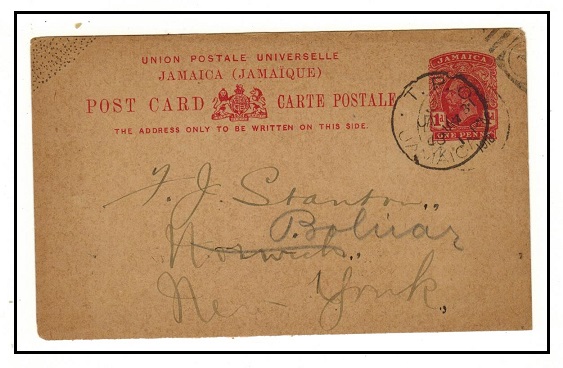 UNION POSTALE UNIVERSELLE
JAMAICA (JAMAIQUE)
POST CARD CARTE POSTALE
THE ADDRESS ONLY TO BE WRITTEN ON THIS SIDE.
JAMAICA
1d
ONE PENNY
JAMAICA
F. J. Stanton,,
Bolivar
Norwich,,
New York,,